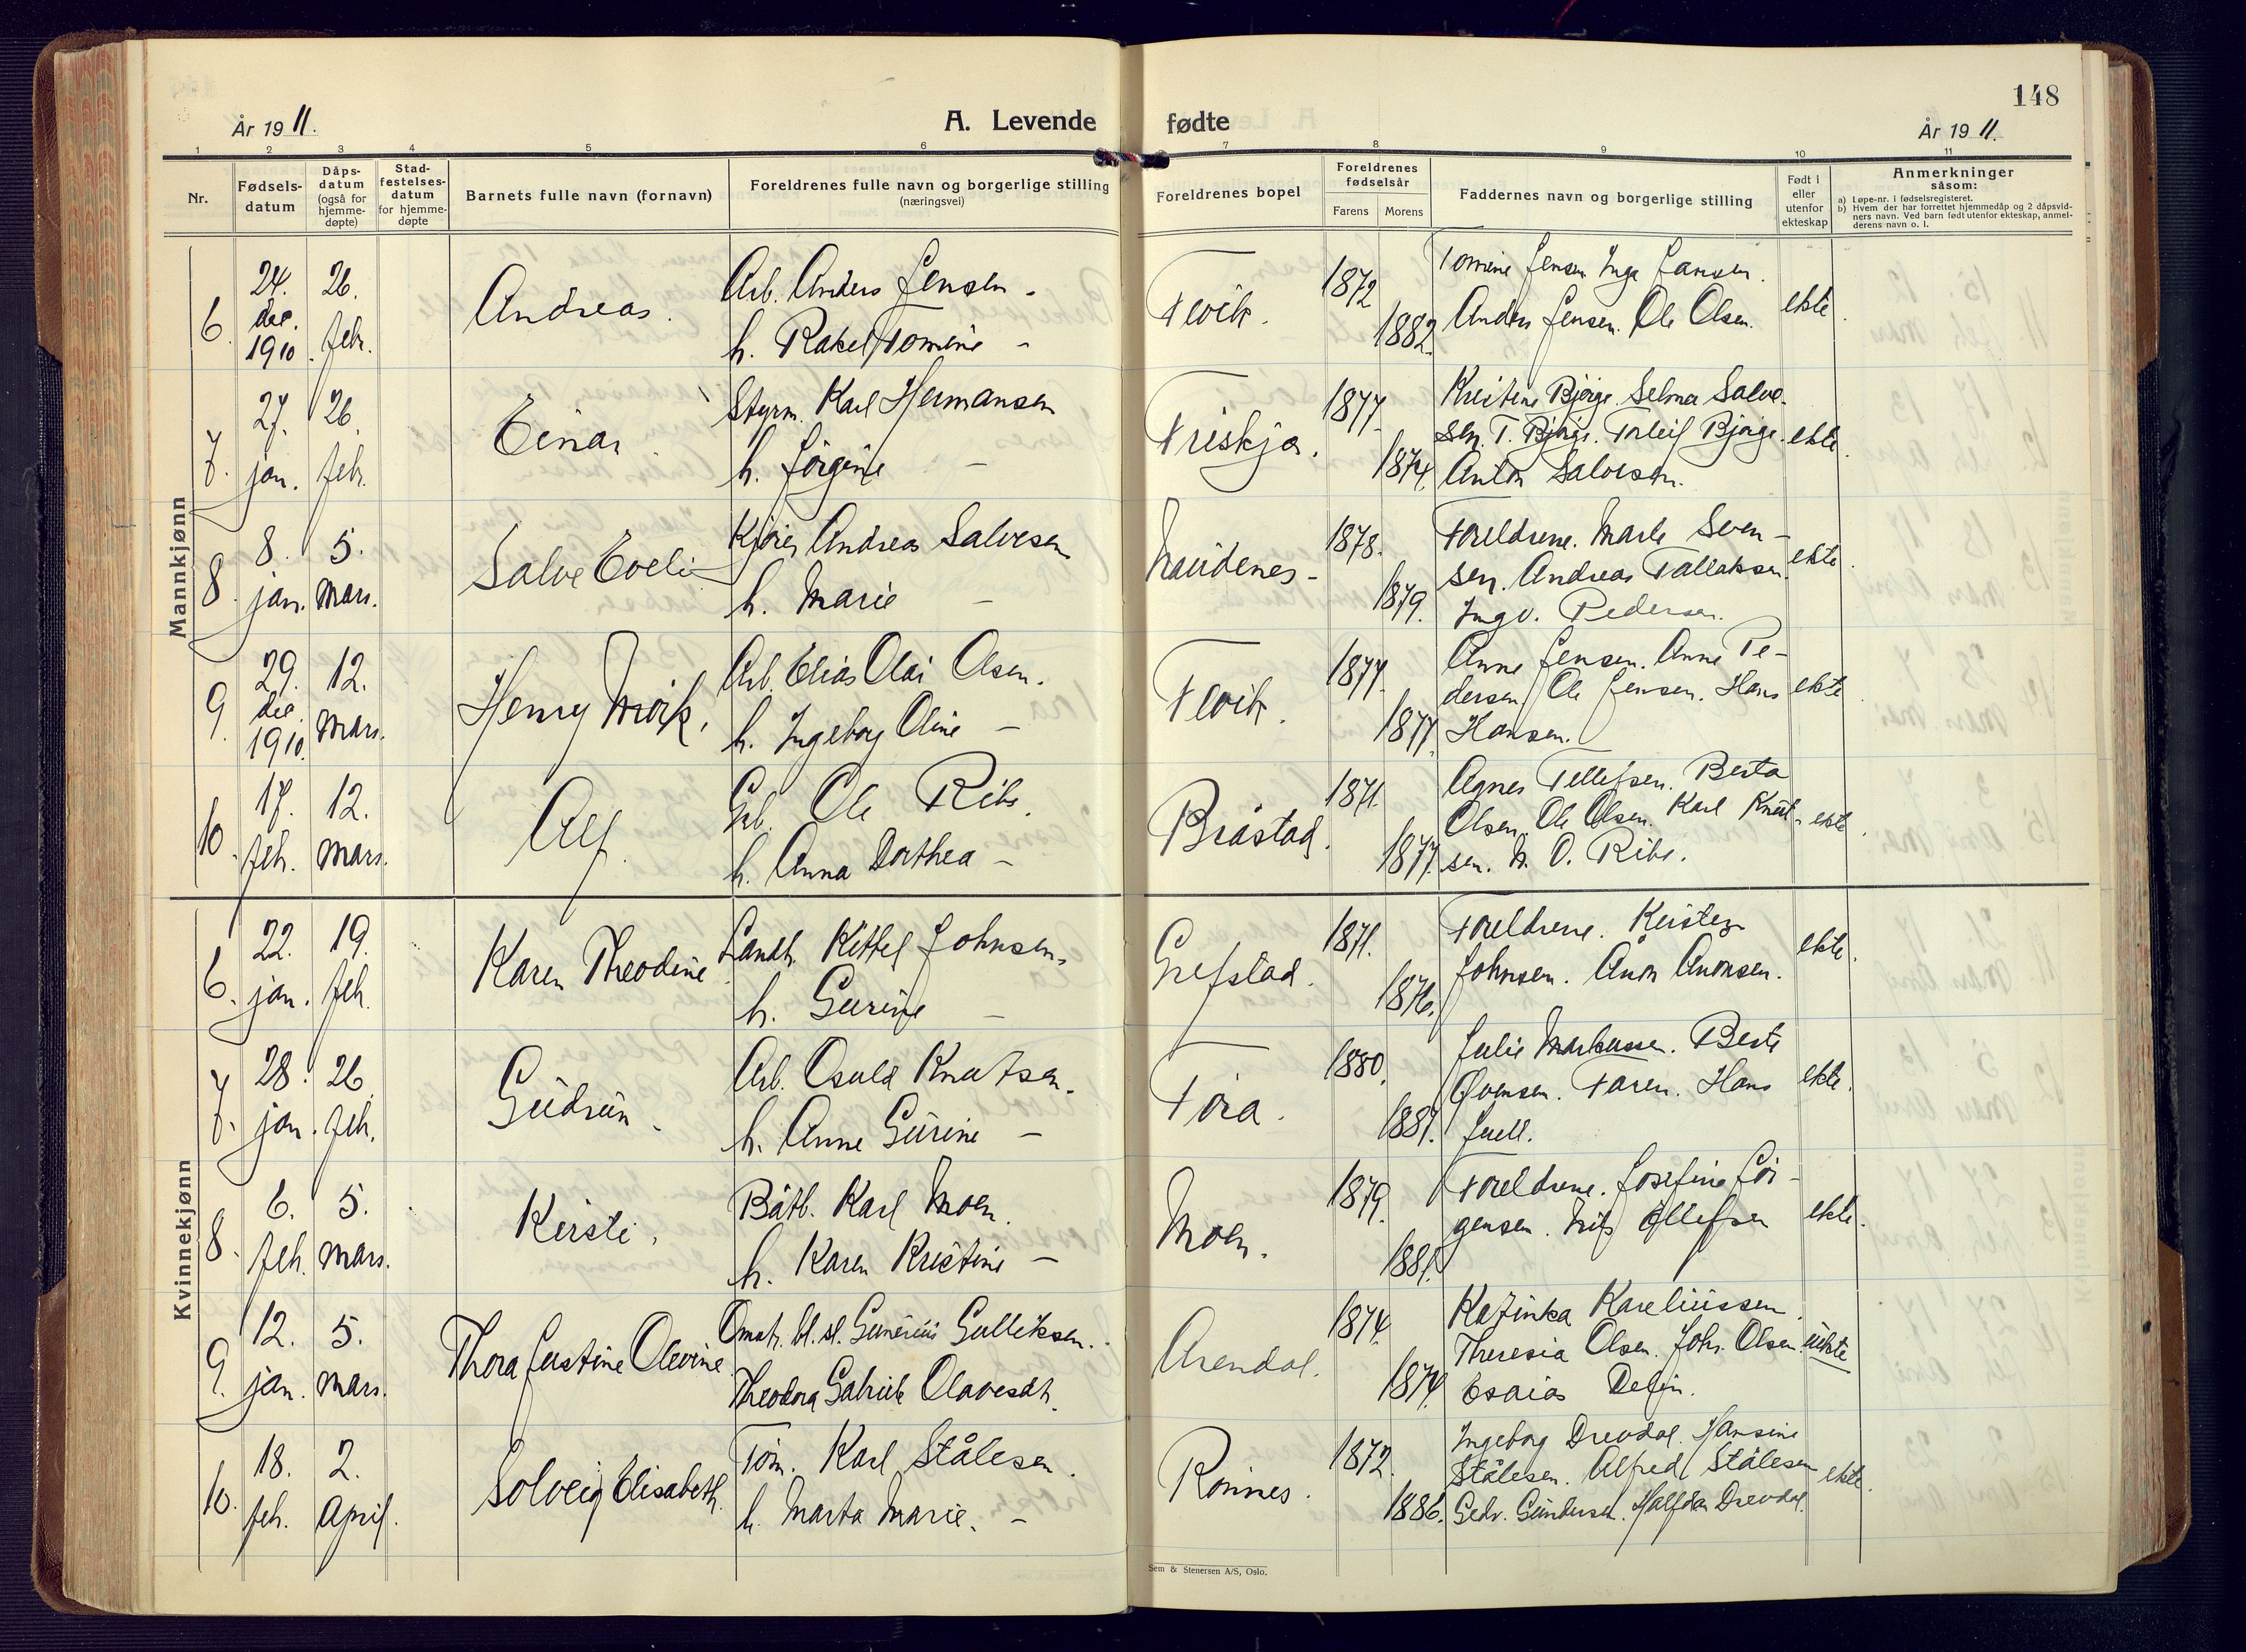 148
År 1911.
A. Levende fødte
År 1911.
1 2 3 4 5 6 7 8 9 10 11
Nr.
Fødsels-
datum
Dåps-
datum
(også for
hjemme-
døpte)
Stad-
festelses-
datum
for hjemme-
døpte
Barnets fulle navn (fornavn)
Foreldrenes fulle navn og borgerlige stilling
(næringsvei)
Foreldrenes bopel
Foreldrenes
fødselsår
Farens Morens
Faddernes navn og borgerlige stilling
Født i
eller
utenfor
ekteskap
Anmerkninger
såsom:
a) Løpe-nr. i fødselsregisteret.
b) Hvem der har forrettet hjemmedåp og 2 dåpsvid-
ners navn. Ved barn født utenfor ekteskap, anmel-
derens navn o. l.
Mannkjønn
6.
24.
dec.
1910.
26.
febr.
Andreas.
Arb. Anders Jensen -
h. Rakel Tomine -
Fevik.
1872
1882.
Tomine Jensen Inga Jansen.
Anders Jensen. Ole Olsen.
ekte
7.
27.
jan.
26.
febr.
Einar
Styrm. Karl Hermansen
h. Jørgine -
Friskja.
1877.
1874.
Kristine Bjorge. Selma Salve-
sen. T. Bjorge. Torleif Bjorge.
Anton Salvesen.
ekte.
8.
8.
jan.
5.
mars.
Salve Eveli
Andreas Salvesen
h. Marie -
Naudenes -
1878.
1879.
Foreldrene. Marte Sven-
sen. Andreas Tallaksen.
Ingv. Pedersen.
ekte.
9.
29.
dec.
1910.
12.
mars.
Henry Mørk.
Arb. Elias Olai Olsen.
h. Ingeborg Oline -
Fevik.
1877.
1877.
Anne Jensen. Anne Pe-
dersen. Ole Jensen. Hans
Hansen.
ekte.
10.
17.
feb.
12.
mars.
Alf.
Gb. Ole Ribe.
h. Anna Dorthea -
Bråstad.
1871.
1877.
Agnes Tellefsen. Berta
Olsen. Ole Olsen. Karl Knut-
sen. N. O. Ribe.
ekte.
Kvinnekjønn
6.
22.
jan.
19.
feb.
Karen Theodine.
Landh. Kittel Johnsen.
h. Gurine -
Grefstad.
1871.
1876.
Foreldrene. Kirsten
Johnsen. Aanon Aanonsen.
ekte.
7.
28.
jan.
26.
feb.
Gudrun.
Arb. Osuld Knutsen.
h. Anne Gurine -
Tora.
1880.
1881.
Julie Markussen. Berte
Evensen. Taren. Hans
Juell.
ekte.
8.
6.
feb.
5.
mars.
Kirsti.
Båtb. Karl Moen.
h. Karen Kristine -
Moen.
1879.
1881.
Foreldrene. Josefine Jør-
gensen. Nils Ellefsen
ekte.
9.
12.
jan.
5.
mars.
Thora Justine Olevine.
Omstr. bl. sl. Gunerius Gulleksen.
Theodora Gabriele Olavesdt.
Arendal.
1874.
1874.
Katinka Kareliussen.
Theresia Olsen. Johs. Olsen.
Esaias Delfin.
uekte
10.
18.
feb.
2.
April.
Solveig Elisabeth.
Tøm. Karl Stålesen.
h. Marta Marie. -
Rønnes.
1872.
1886.
Ingeborg Drevdal. Hansine
Stålesen. Alfred Stålesen
Gedv. Gundersen. Halfdan Drevdal.
ekte.
Sem & Stenersen A/S, Oslo.